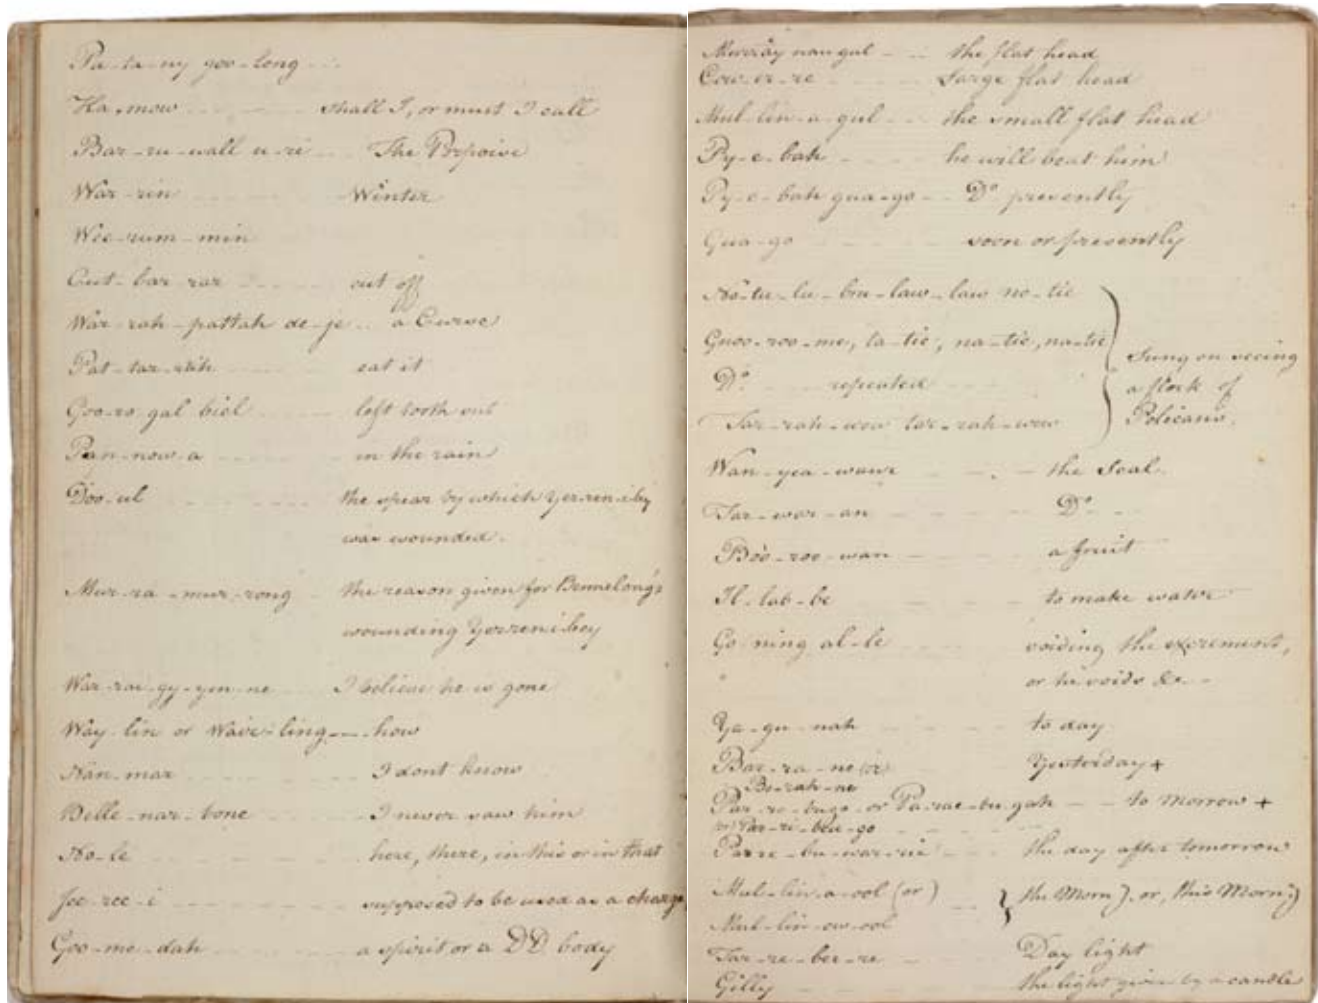 Pa-ta-ny goo-long
Ka-mow - - - shall I, or must I call
Bar-ru-wall u-ri - - The Porpoise
War-rin - - - Winter
Wee-rum-min
Cut-bar-rar - - - cut off
War-rah-pattah de-je - - a Curse
Pat-tar-rah - - - eat it
Goo-ro-gal biel - - - left tooth out
Pan-now-a - - - in the rain
Doo-ul - - - the spear by which Yerren-iby
was wounded.
Mur-ra-mur-rong - the reason given for Bennelong's
wounding Yerrenibey
War-rai-gy-yen-ne - - I believe he is gone
Way-lin or Waire-ling - - how
Nan-mar - - - I dont know
Belle-nar-bone - - - I never saw him
No-le - - - here, there, in this or in that
Jee-ree-i - - - supposed to be used as a charge
Goo-me-dah - - - a spirit or a DD body
Murray nangul - - the flat head
Cow-er-re - - - Large flat head
Mul-lin-a-gul - - the small flat head
Py-e-bah - - - he will beat him
Py-e-bah gua-go - - Do presently
Gua-go - - - soon or presently
No-tu-lu-bru-law-law no-tie
Gnoo-roo-me, ta-tie, na-tie, na-tie
Do - - repeated - -
Tar-rah-wow tar-rah-wow
Sung on seeing
a flock of
Pelicans.
Wan-yea-waur - - - the Seal.
Tar-war-an - - - Do - -
Boo-roo-wan - - - a fruit
Il-lab-be - - - to make water
Go-ning al-le - - - voiding the excrement,
or he voids &c -
Ya-gu-nah - - - to day
Bar-ra-ne (or) Yesterday +
Bo-rah-ne
Par-re-bugo or Pa-rae-bu-gah - - to Morrow +
or Par-ri-beu-go - - -
Parre-bu-war-vie - - - the day after tomorrow
Mul-lin-a-ool (or) - - } the Morng. or, this Morng)
Mul-lin-ow-ool
Tar-re-ber-re - - - Day light
Gilly - - - the light given by a candle